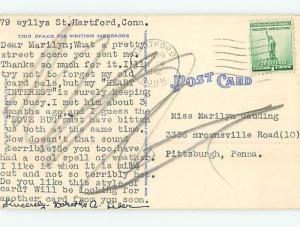 79 Wyllys St.Hartford,Conn.
THIS SPACE FOR WRITING MESSAGES
Dear Marilyn;What a pretty
street scene you sent me.
Thanks so much for it.I'll
try not to forget my old
card pals,but my "HEART
INTEREST" is surely keeping
me busy.I met him about 3
months ago,and I guess the
LOVE BUG must have bitten
us both at the same time.
Now doesn't that sound
terribly so to you?We have
had a cool spell of weather.
I like it when it is mild
out and not so terribly hot.
Do you like this style of
card? Will be looking for
another card from you soon.
Sincerely- Dorothy A.
HARTFORD
POST CARD
Miss Marilyn Gauding
3335 Brownsville Road(10)
Pittsburgh, Penna.